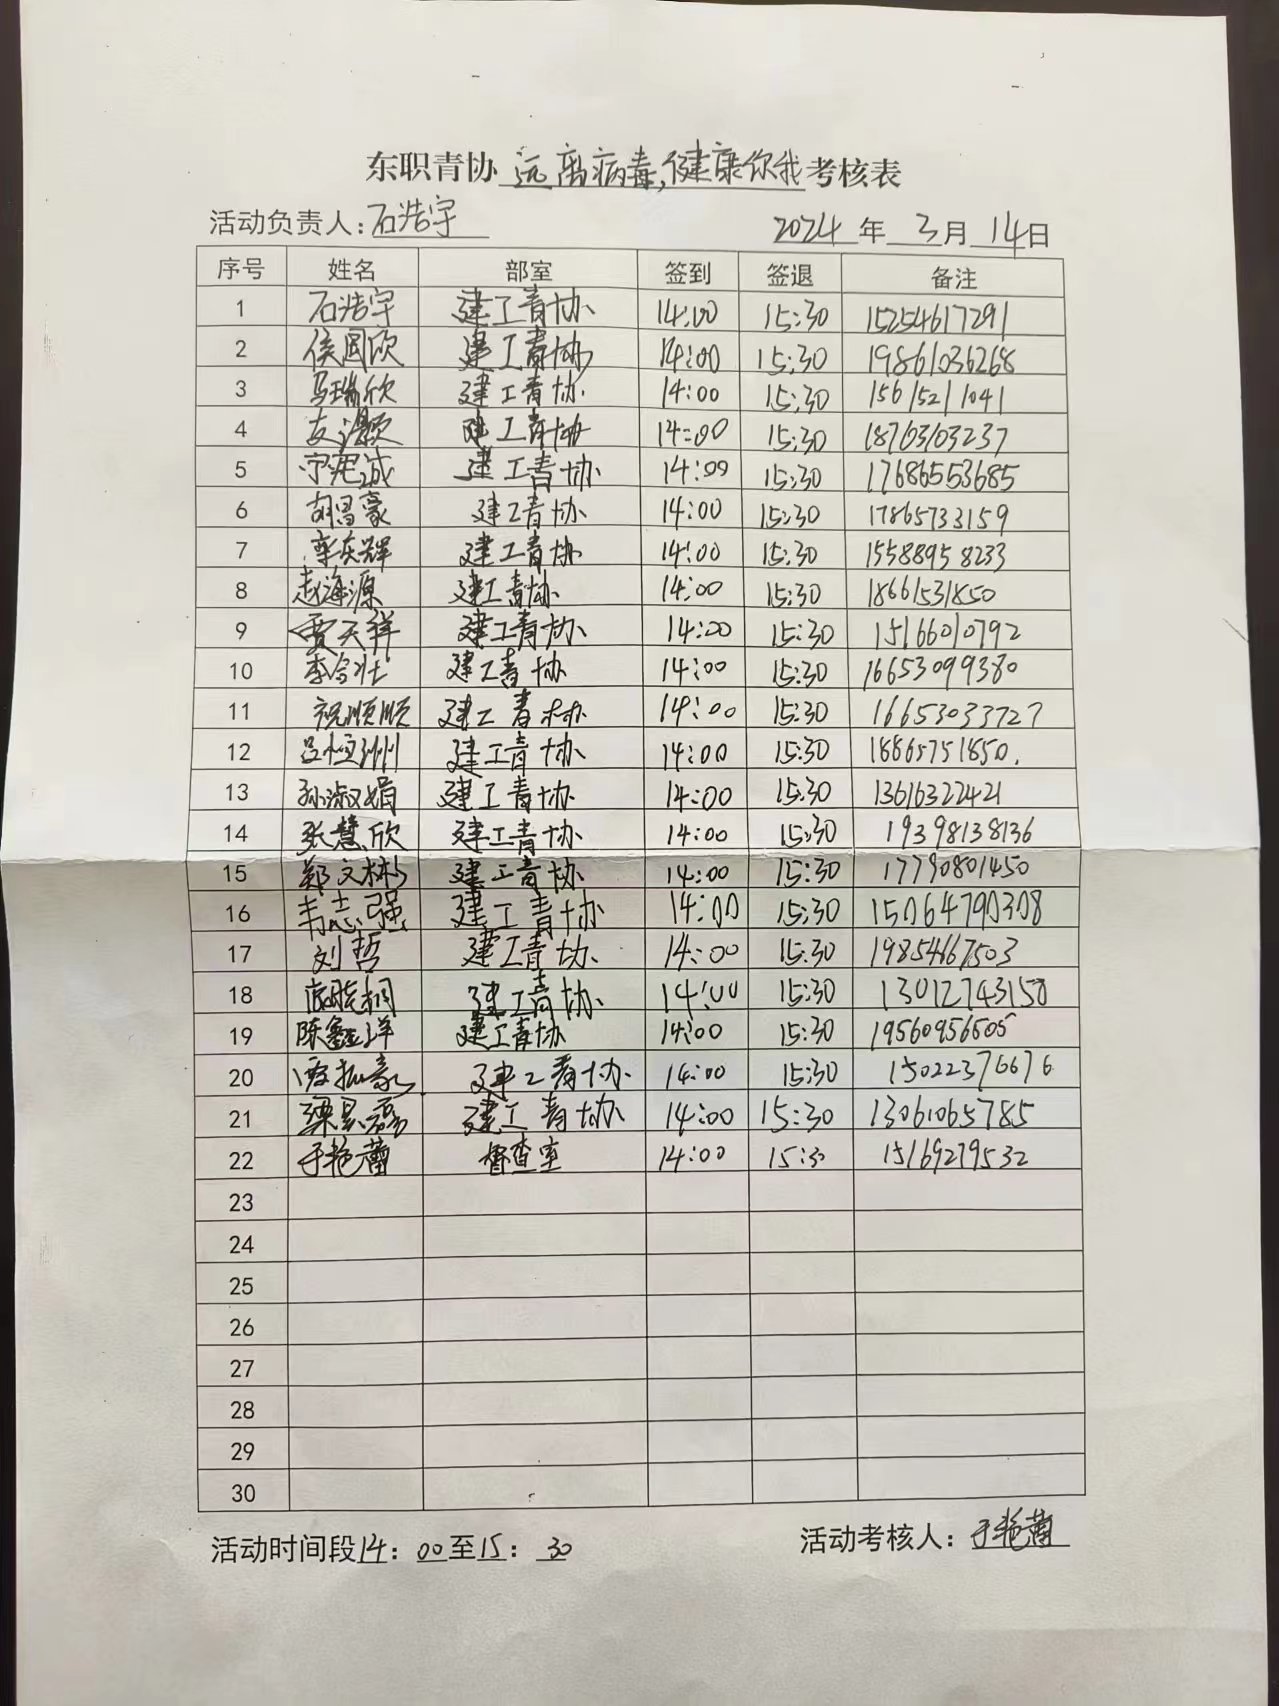 东职青协 远离病毒,健康你我 考核表
活动负责人:石浩宇 2024 年 3 月 14 日
序号 姓名 部室 签到 签退 备注
1 石浩宇 建工青协 14:00 15:30 15254617291
2 侯国欣 建工青协 14:00 15:30 19861036268
3 马瑞欣 建工青协 14:00 15:30 15615211041
4 建工青协 14:00 15:30 18763103237
5 建工青协 14:00 15:30 17686553685
6 胡昌豪 建工青协 14:00 15:30 17865733159
7 建工青协 14:00 15:30 15588958233
8 赵海源 建工青协 14:00 15:30 18661531850
9 贾天祥 建工青协 14:00 15:30 15166010792
10 建工青协 14:00 15:30 16653099380
11 祝顺顺 建工青协 14:00 15:30 16653033727
12 吕恒洲 建工青协 14:00 15:30 18865751850.
13 孙淑娟 建工青协 14:00 15:30 13616322421
14 张慧欣 建工青协 14:00 15:30 19398138136
15 郑文彬 建工青协 14:00 15:30 17790801450
16 韦志强 建工青协 14:00 15:30 15064790308
17 刘哲 建工青协 14:00 15:30 19854667503
18 建工青协 14:00 15:30 13012743150
19 陈鑫洋 建工青协 14:00 15:30 19560956505
20 建工青协 14:00 15:30 15022376676
21 梁昊磊 建工青协 14:00 15:30 13061065785
22 于艳蕾 督查室 14:00 15:30 15169279532
23
24
25
26
27
28
29
30
活动时间段14:00至15:30 活动考核人:于艳蕾